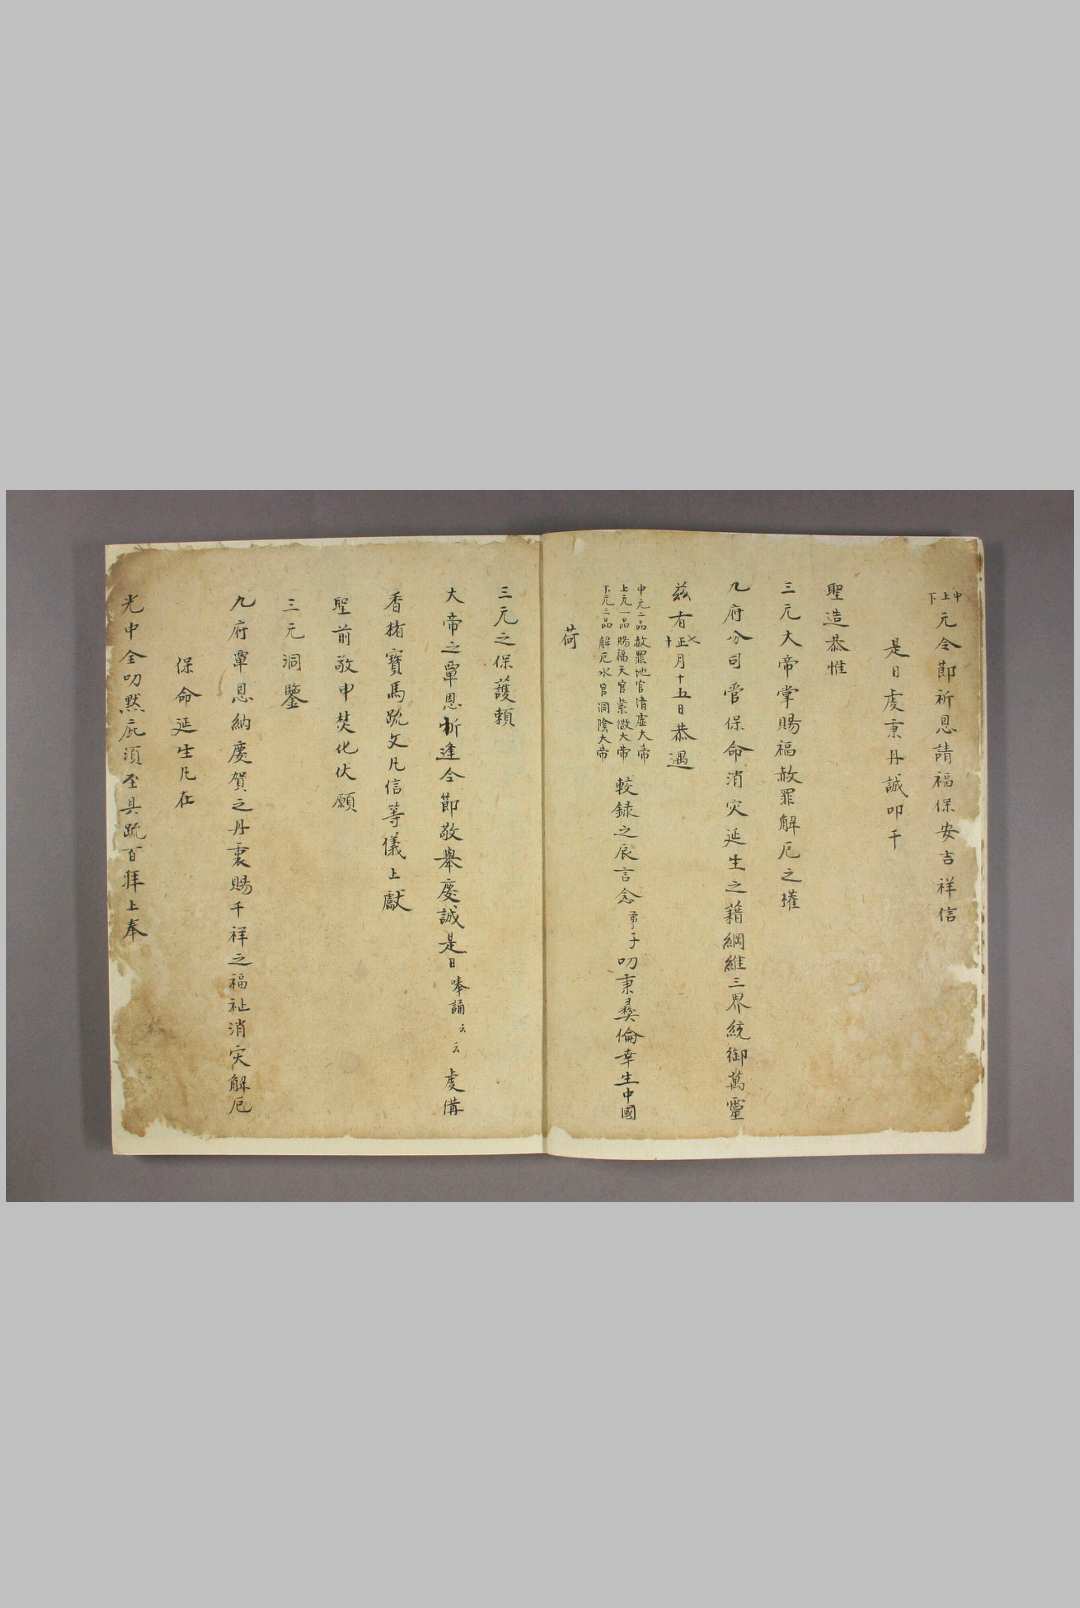 中上下元令節祈恩請福保安吉祥信
是日虔秉丹誠叩干
聖造恭惟
三元大帝掌賜福赦罪解厄之權
九府分司管保命消灾延生之籍綱維三界統御萬靈
兹者正七十月十五日恭遇
中元二品赦罪地官清虛大帝
上元一品賜福天官紫微大帝
下元三品解厄水官洞陰大帝
較錄之辰言念弟子叨秉彝倫幸生中國
荷
三元之保護賴
大帝之覃恩欣逢令節敬舉慶誠是日奉誦云云虔備
香楮寶馬疏文凡信等儀上獻
聖前敬申焚化伏願
三元洞鑒
九府覃恩納慶賀之丹衷賜千祥之福祉消灾解厄
保命延生凡在
光中全叨黙庇須至具疏百拜上奉